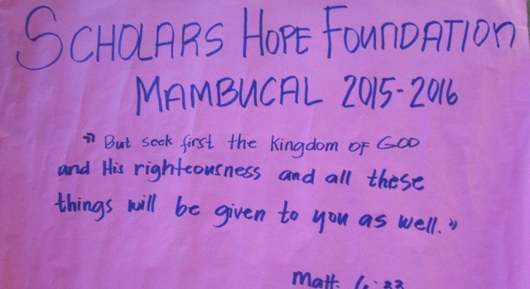 SCHOLARS HOPE FOUNDATION
MAMBUCAL 2015-2016
"But seek first the kingdom of GOD
and His righteousness and all these
things will be given to you as well."
Matt. 6:33